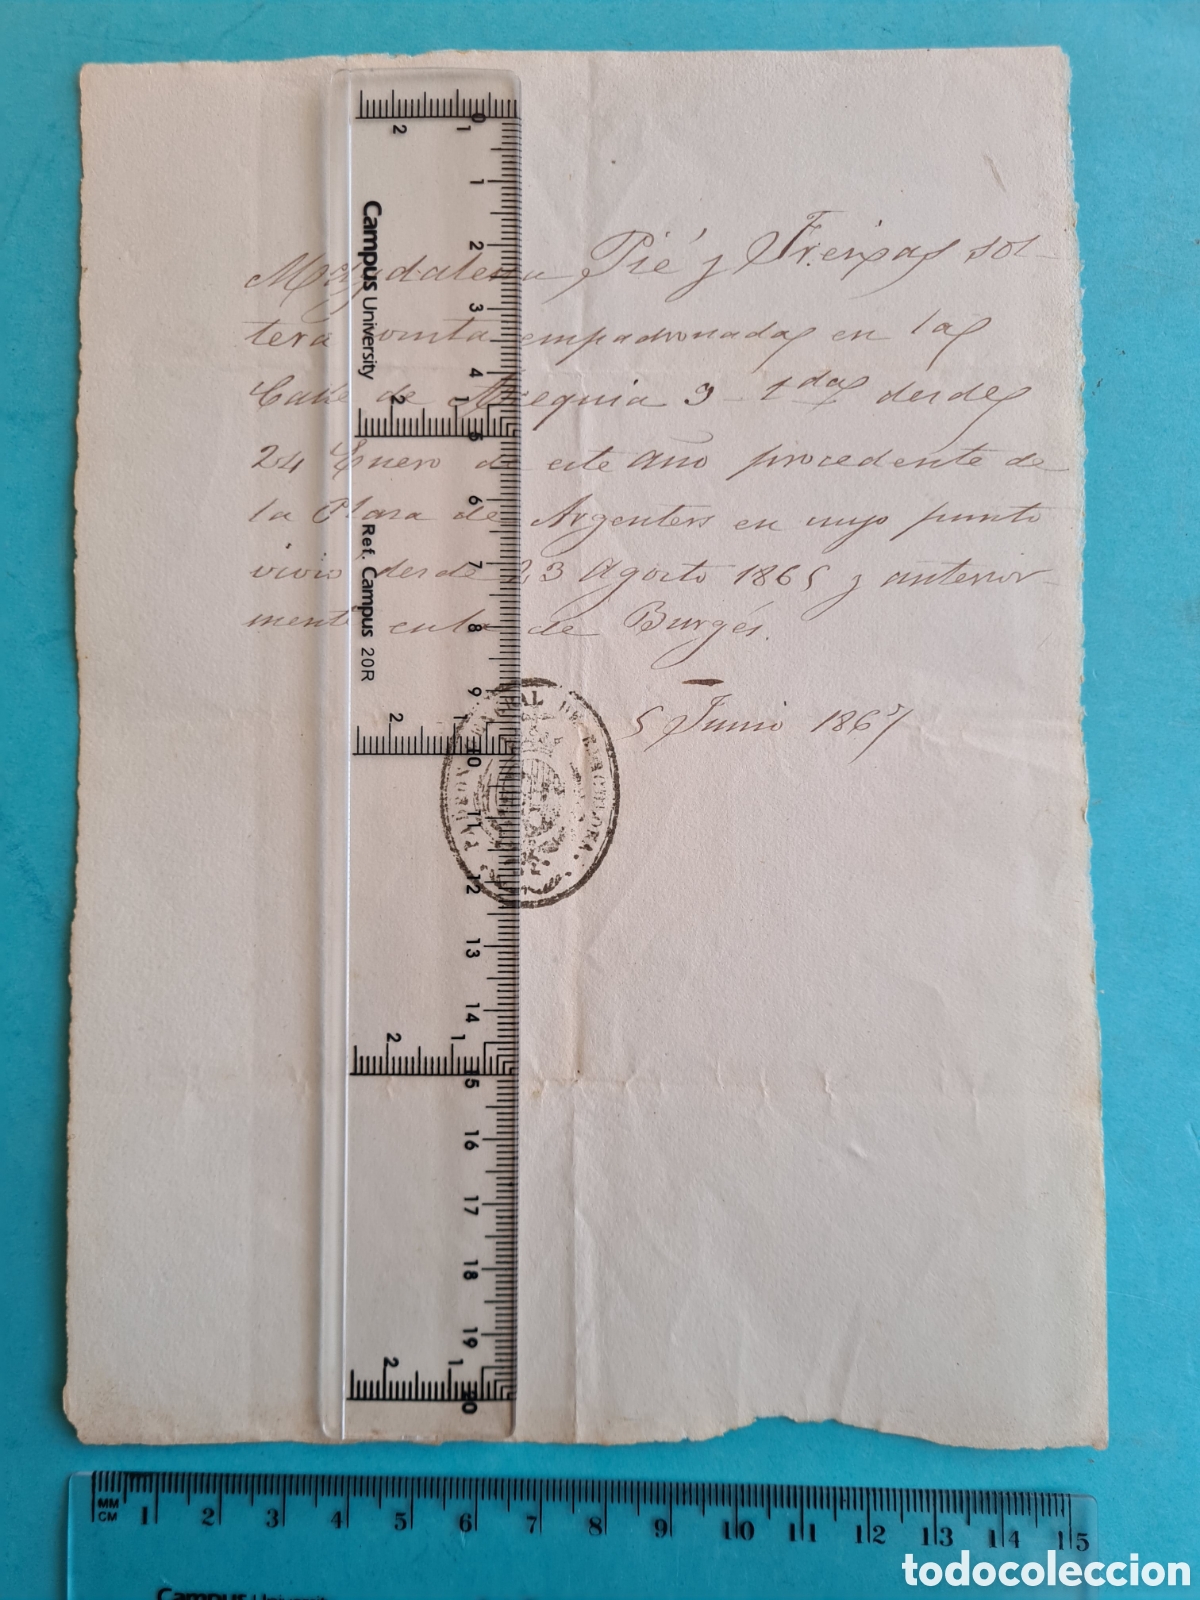 Magdalena Pié y Freixas sol-
tera consta empadronada en la
Calle de Arequia 3 - 1da desde
24 Enero de este año procedente de
la Plaza de Argenters en cuyo punto
vivio desde 23 Agosto 1865 y anterior-
mente en la de Burgés.
5 Junio 1867
DE BARCELONA
Campus University
Ref. Campus 20R
0 1 2 3 4 5 6 7 8 9 10 11 12 13 14 15 16 17 18 19 20
MM
CM 1 2 3 4 5 6 7 8 9 10 11 12 13 14 15
Campus University
todocoleccion